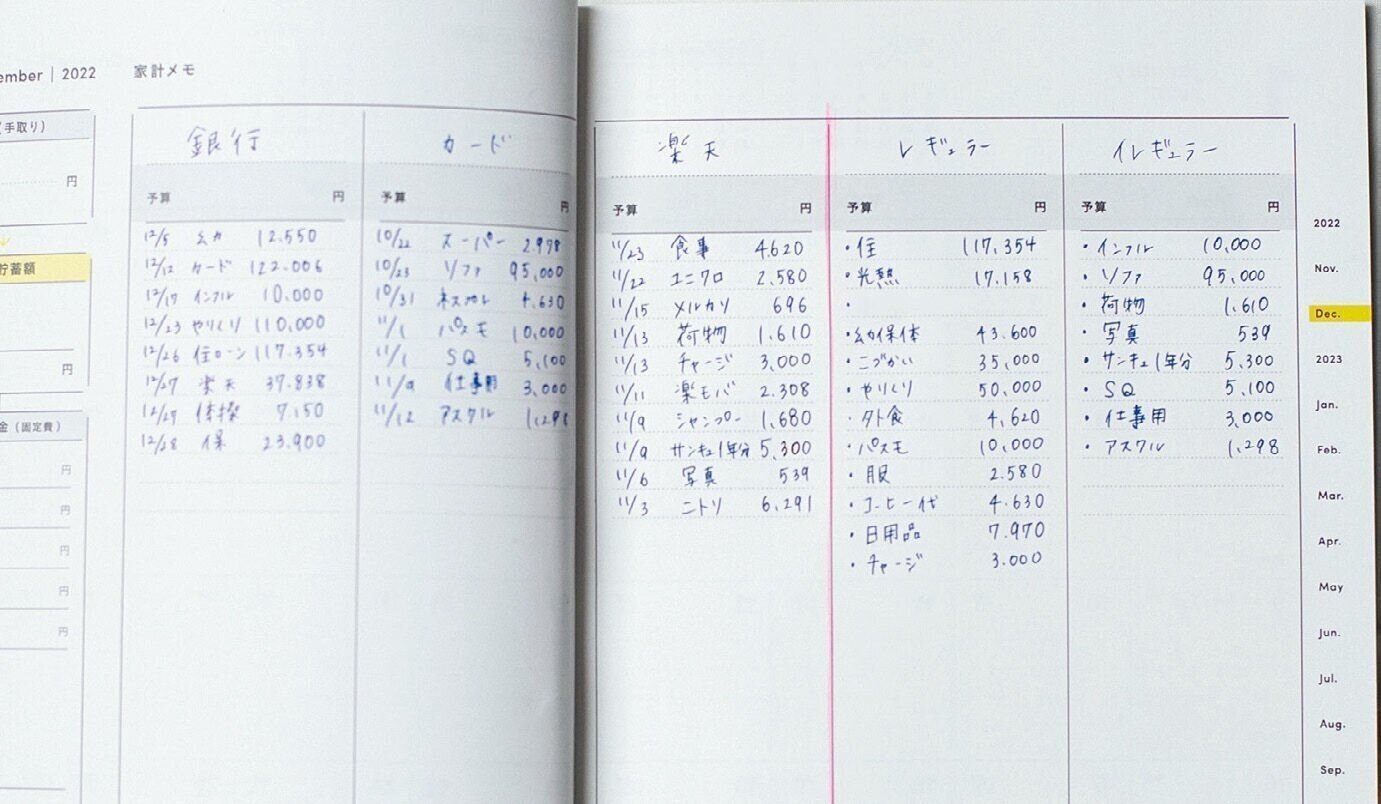 ember | 2022 家計メモ
(手取り)
円
貯蓄額
円
金(固定費)
円
円
円
円
円
銀行
予算 円
12/5 幼 12.550
12/12 カード 122.006
12/19 インフル 10.000
12/23 やりくり 110,000
12/26 住ローン 117.354
12/27 楽天 37.838
12/27 体操 7.150
12/28 保 23.900
カード
予算 円
10/22 スーパー 2.998
10/23 ソファ 95,000
10/31 ネスカフェ 4,630
11/1 パスモ 10,000
11/1 SQ 5,100
11/9 仕事用 3,000
11/12 アスクル 1,298
楽天
予算 円
11/23 食事 4.620
11/22 ユニクロ 2.580
11/15 メルカリ 696
11/13 荷物 1.610
11/13 チャージ 3,000
11/11 楽モバ 2.308
11/9 シャンプー 1,680
11/9 サンキュ1年分 5,300
11/6 写真 539
11/3 ニトリ 6,291
レギュラー
予算 円
・住 117,354
・光熱 17.158
・
・幼保体 43.600
・こづかい 35,000
・やりくり 50,000
・外食 4,620
・パスモ 10,000
・服 2.580
・コーヒー代 4.630
・日用品 7.970
・チャージ 3.000
イレギュラー
予算 円
・インフル 10,000
・ソファ 95,000
・荷物 1,610
・写真 539
・サンキュ1年分 5,300
・SQ 5,100
・仕事用 3,000
・アスクル 1,298
2022
Nov.
Dec.
2023
Jan.
Feb.
Mar.
Apr.
May
Jun.
Jul.
Aug.
Sep.